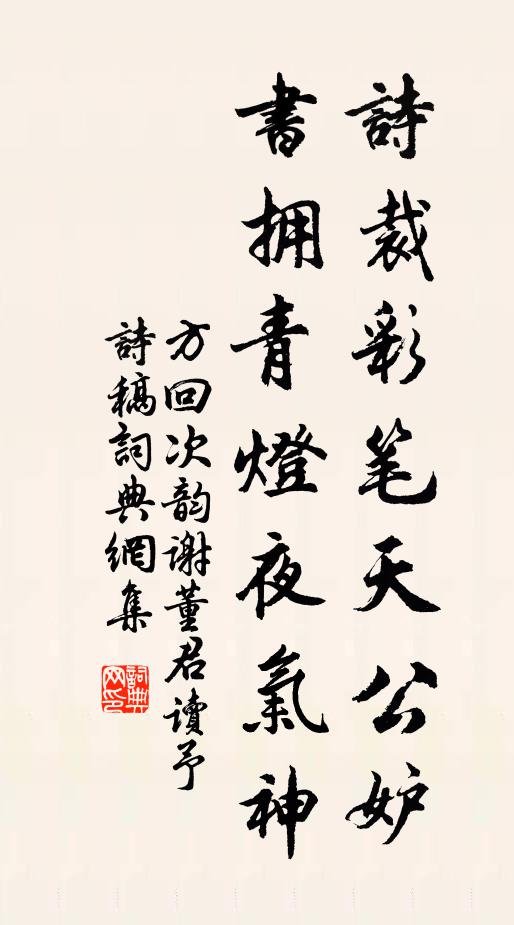 詩裁彩笔天公妒
書拥青燈夜氣神
方回次韵谢董君讀予
詩稿詞典網集
詞典网印